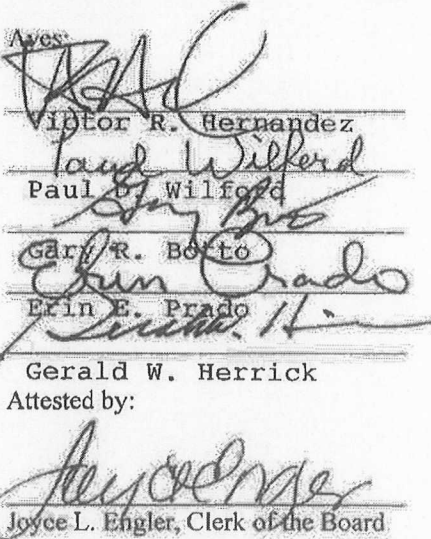 Ayes:
Victor R. Hernandez
Paul Wilford
Paul D. Wilford
Gary R. Botto
Erin Prado
Erin E. Prado
Gerald W. Herrick
Attested by:
Joyce Engler
Joyce L. Engler, Clerk of the Board